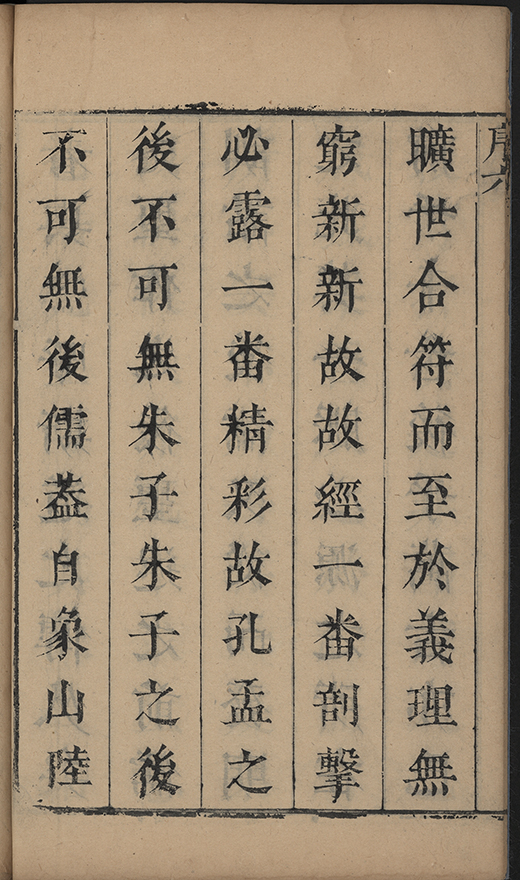 序六
曠世合符而至於義理無
窮新新故故經一番剖擊
必露一番精彩故孔孟之
後不可無朱子朱子之後
不可無後儒葢自象山陸